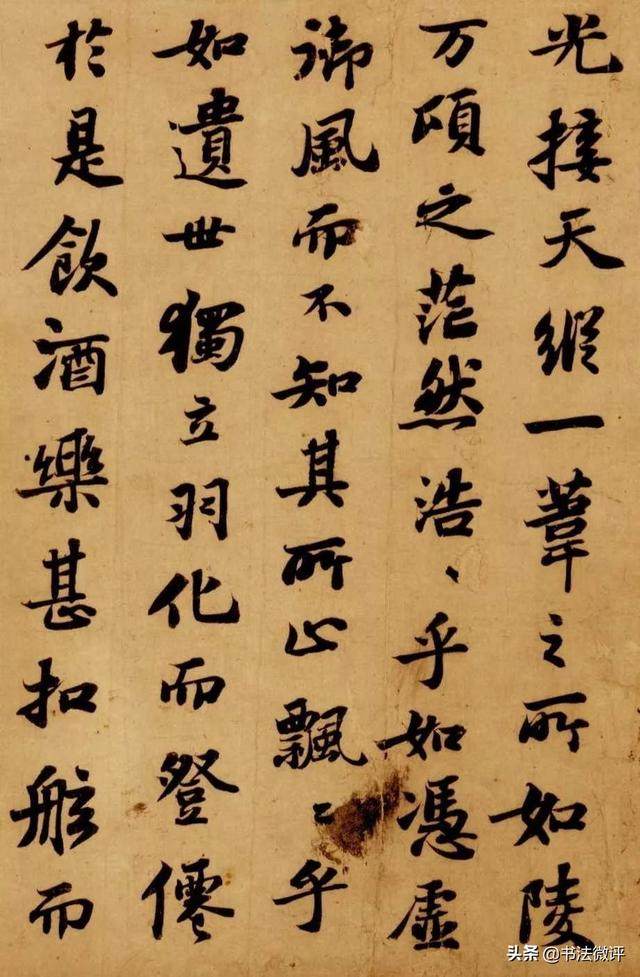 光接天縱一葦之所如陵
万頃之茫然浩〻乎如馮虛
御風而不知其所止飄〻乎
如遺世獨立羽化而登僊
於是飲酒樂甚扣舷而
头条 @书法微评